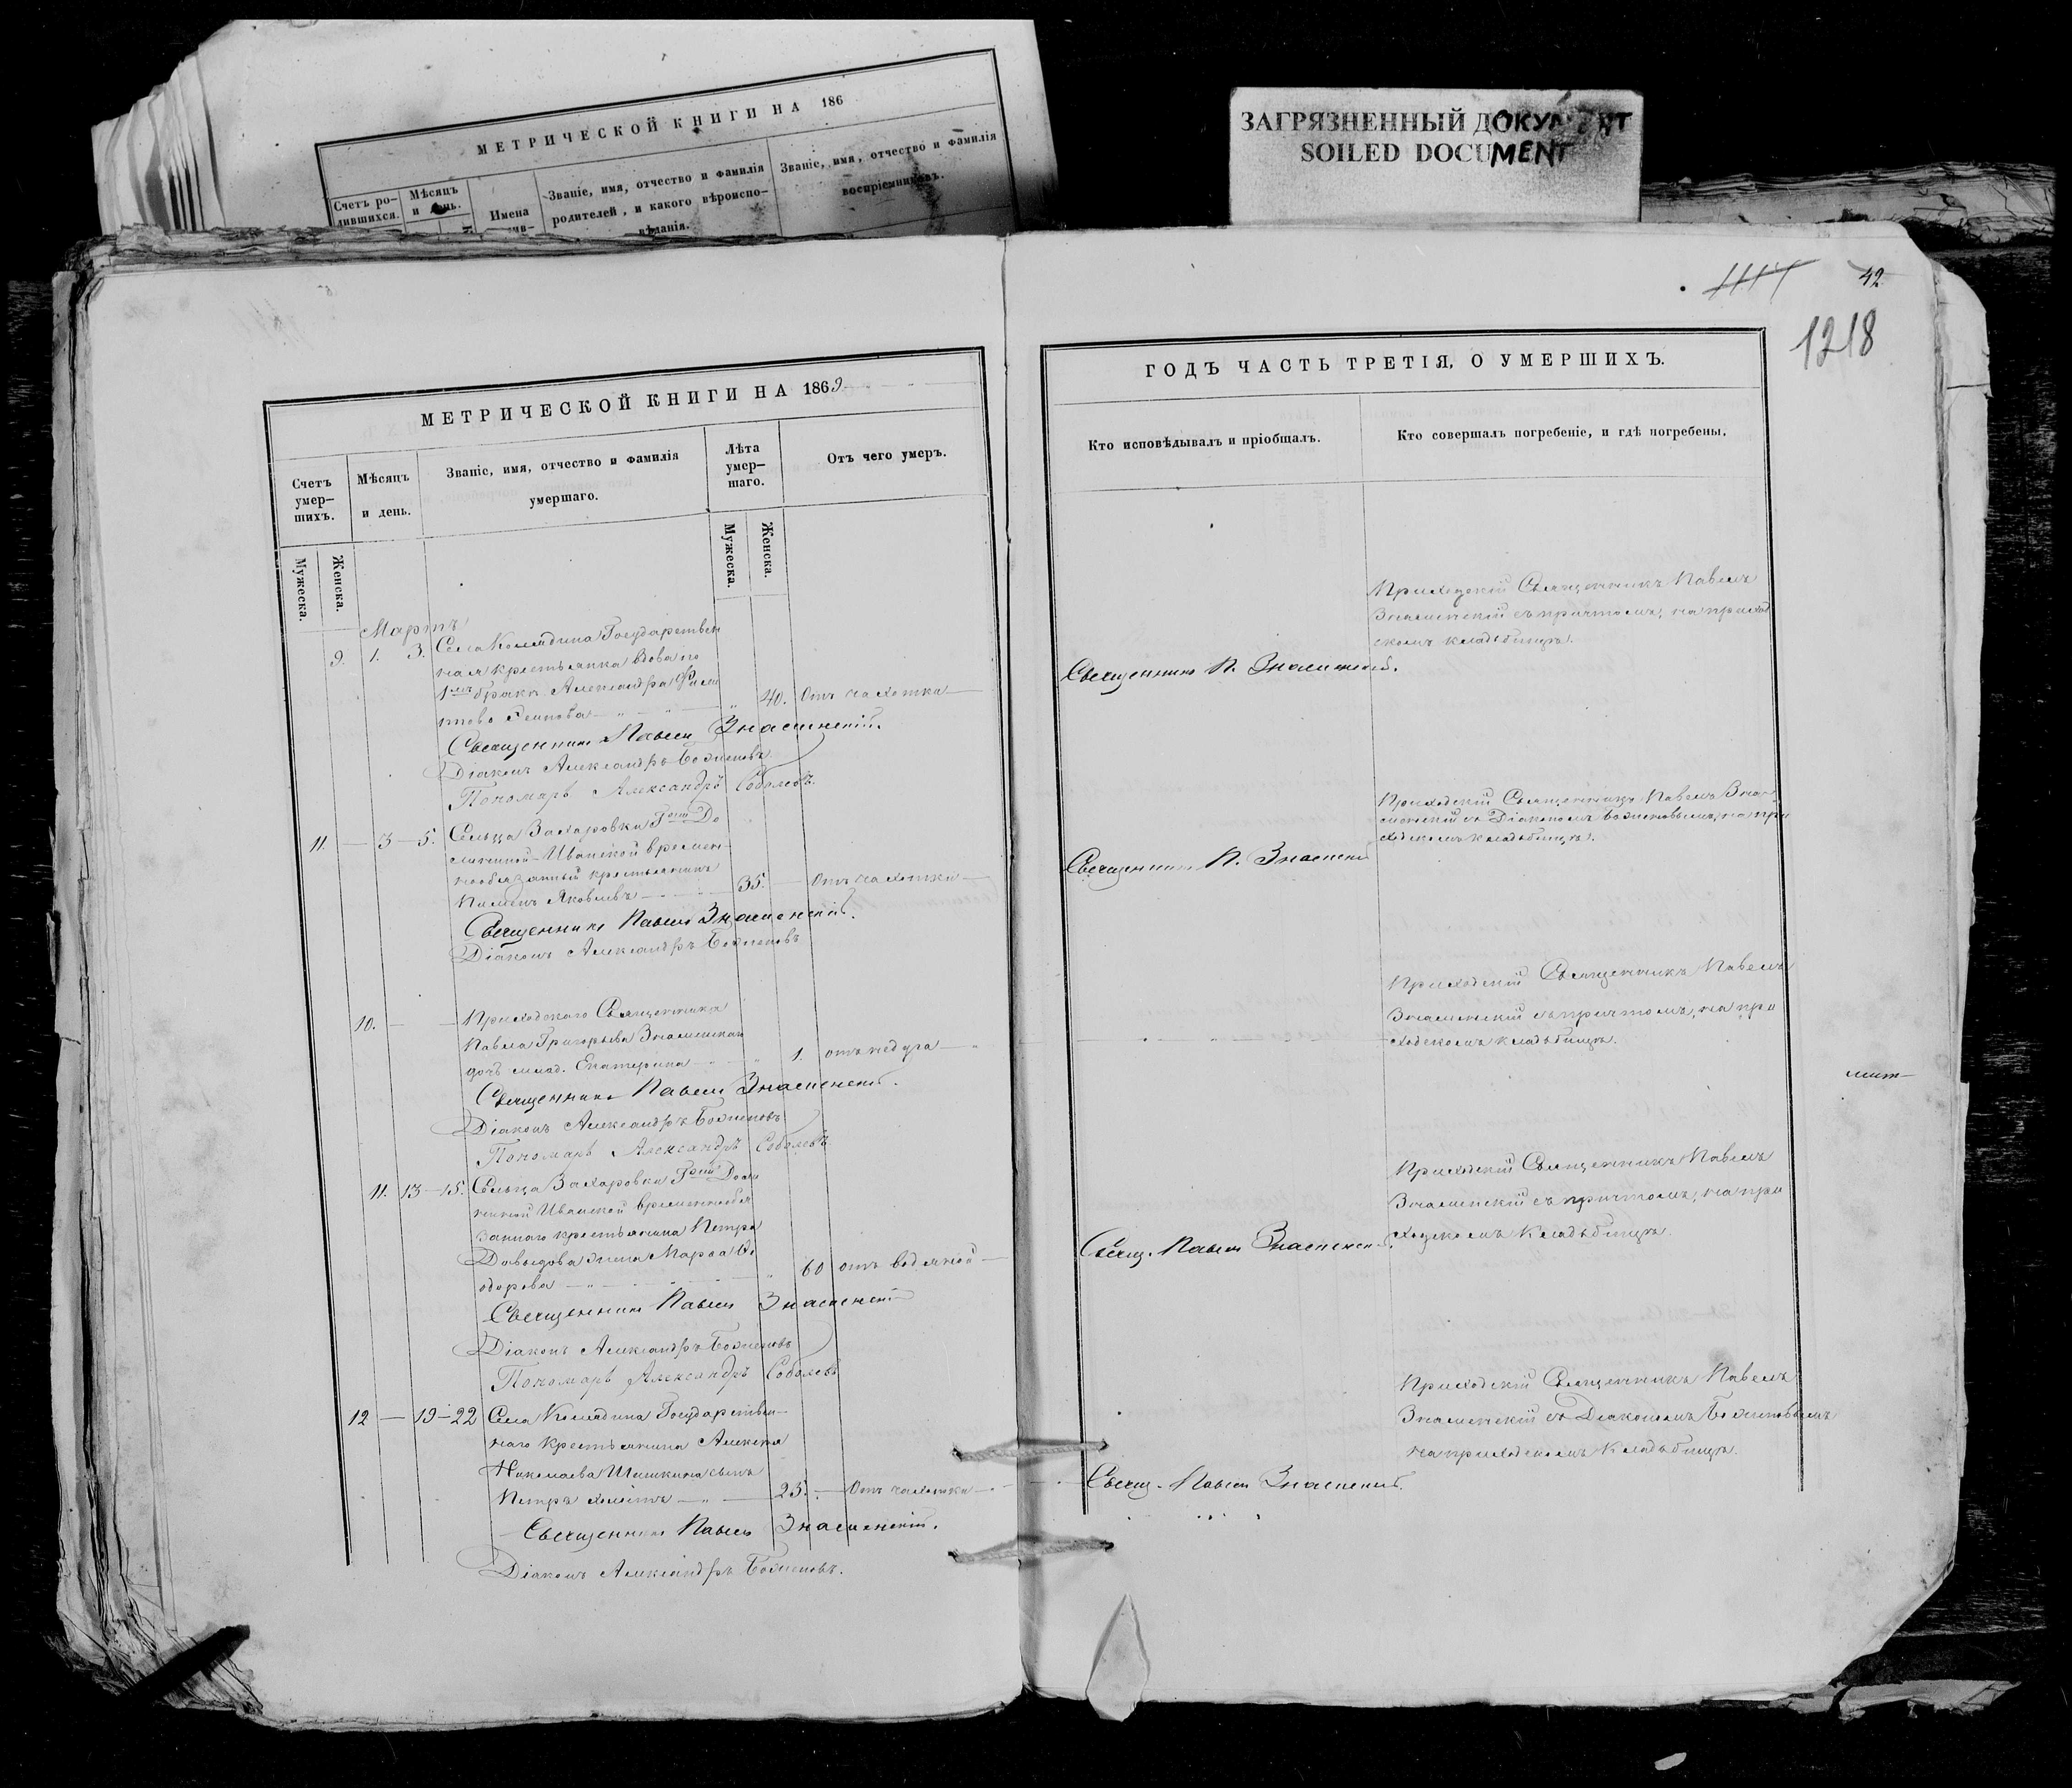 МЕТРИЧЕСКОЙ КНИГИ НА 186
Счетъ ро-
дившихся.
Мѣсяцъ
и день.
Имена
Званіе, имя, отчество и фамилія
родителей, и какого вѣроиспо-
вѣданія.
Званіе, имя, отчество и фамилія
воспріемниковъ.
ЗАГРЯЗНЕННЫЙ ДОКУМЕНТ
SOILED DOCUMENT
МЕТРИЧЕСКОЙ КНИГИ НА 1869
Счетъ
умер-
шихъ.
Мѣсяцъ
и день.
Званіе, имя, отчество и фамилія
умершаго.
Лѣта
умер-
шаго.
Отъ чего умеръ.
Мужеска.
Женска.
Мужеска.
Женска.
Мартъ
9. 1. 3. Села Колядина Государствен
ная крестьянка вдова по
1мъ бракѣ Александра
40. Отъ чахотки
Священникъ Павелъ Знаменскій.
Діаконъ Александръ Боженовъ
Пономарь Александръ Соболевъ.
11. 3 — 5. Сельца Захаровки Гжи До
линной-Иванской времен-
нообязанный крестьянинъ
Пименъ Яковлевъ 35. Отъ чахотки
Священникъ Павелъ Знаменскій.
Діаконъ Александръ Боженовъ
10. Приходскаго Священника
Павла Григорьева Знаменскаго
дочь млад. Екатерина 1. отъ недуга
Священникъ Павелъ Знаменскій.
Діаконъ Александръ Боженовъ
Пономарь Александръ Соболевъ
11. 13 — 15. Сельца Захаровки Гжи Доли
нной Иванской временнообя
заннаго крестьянина Петра
Давыдова жена Марѳа Ѳе
одорова 60 отъ водяной
Священникъ Павелъ Знаменскій
Діаконъ Александръ Боженовъ
Пономарь Александръ Соболевъ
12 — 19 — 22 Села Колядина Государствен-
наго крестьянина Алексѣя
Николаева Шишкина сынъ
Петръ холостъ 25. Отъ чахотки
Священникъ Павелъ Знаменскій.
Діаконъ Александръ Боженовъ.
42
1218
ГОДЪ ЧАСТЬ ТРЕТІЯ, О УМЕРШИХЪ.
Кто исповѣдывалъ и пріобщалъ.
Кто совершалъ погребеніе, и гдѣ погребены.
Приходскій Священникъ Павелъ
Знаменскій съ причтомъ, на приход
скомъ кладбищѣ.
Священникъ П. Знаменскій.
Приходскій Священникъ Павелъ Зна-
менскій съ Діакономъ Боженовымъ, на при
ходскомъ кладбищѣ.
Священникъ П. Знаменскій
Приходскій Священникъ Павелъ
Знаменскій съ причтомъ, на при
ходскомъ кладбищѣ.
Приходскій Священникъ Павелъ
Знаменскій съ причтомъ, на при
ходскомъ кладбищѣ.
Свящ. Павелъ Знаменскій.
Приходскій Священникъ Павелъ
Знаменскій съ Діакономъ Боженовымъ
на приходскомъ кладбищѣ.
Свящ. Павелъ Знаменскій.